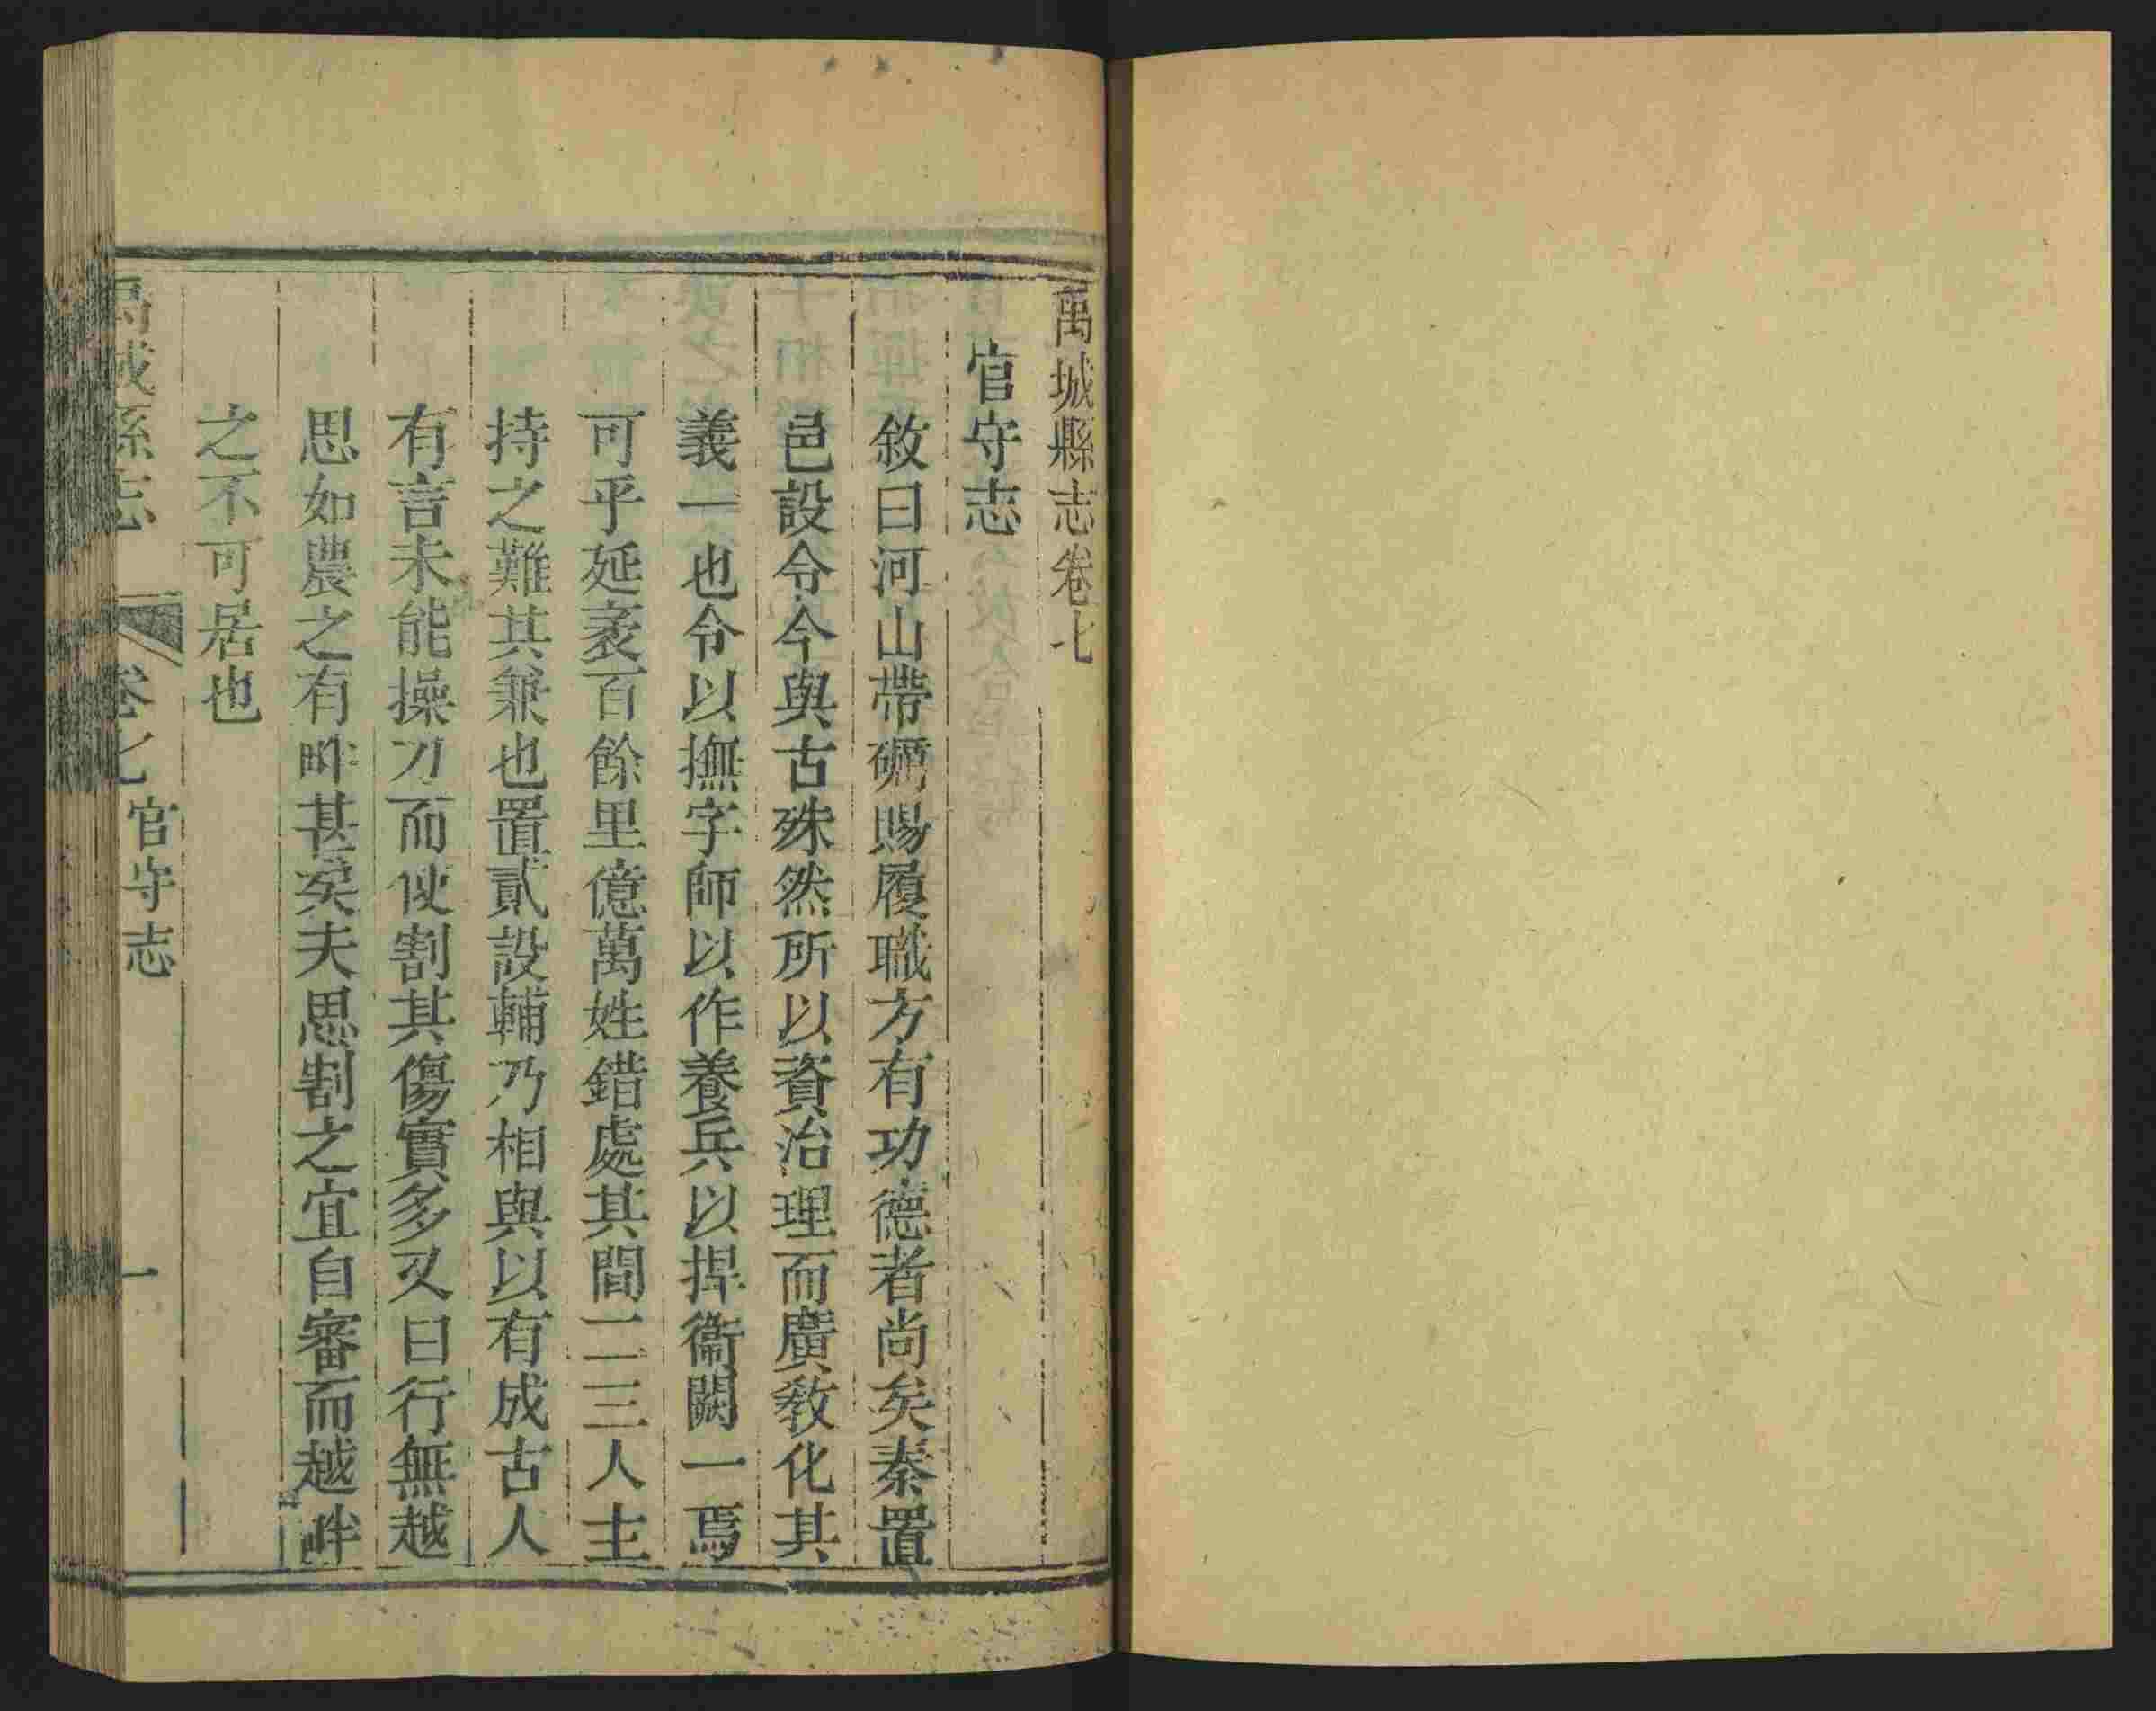 禹城縣志卷七
官守志
敘曰河山帶礪賜履職方有功德者尚矣秦置
邑設令今與古殊然所以資治理而廣教化其
義一也令以撫字師以作養兵以捍衞闕一焉
可乎延袤百餘里億萬姓錯處其間二三人主
持之難其兼也置貳設輔乃相與以有成古人
有言未能操刀而使割其傷實多又曰行無越
思如農之有畔甚矣夫思割之宜自審而越畔
之不可居也
禹城縣志 卷七 官守志 一